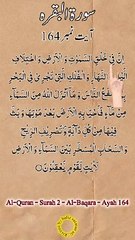 سورۃ البقرہ
آیت نمبر 164
اِنَّ فِیْ خَلْقِ السَّمٰوٰتِ وَ الْاَرْضِ وَ اخْتِلَافِ
الَّیْلِ وَ النَّهَارِ وَ الْفُلْكِ الَّتِیْ تَجْرِیْ فِی الْبَحْرِ
بِمَا یَنْفَعُ النَّاسَ وَ مَاۤ اَنْزَلَ اللّٰهُ مِنَ السَّمَآءِ
مِنْ مَّآءٍ فَاَحْیَا بِهِ الْاَرْضَ بَعْدَ مَوْتِهَا وَ بَثَّ
فِیْهَا مِنْ كُلِّ دَآبَّةٍ وَّ تَصْرِیْفِ الرِّیٰحِ
وَ السَّحَابِ الْمُسَخَّرِ بَیْنَ السَّمَآءِ وَ الْاَرْضِ
لَاٰیٰتٍ لِّقَوْمٍ یَّعْقِلُوْنَ
Al-Quran - Surah 2 - Al-Baqara - Ayah 164